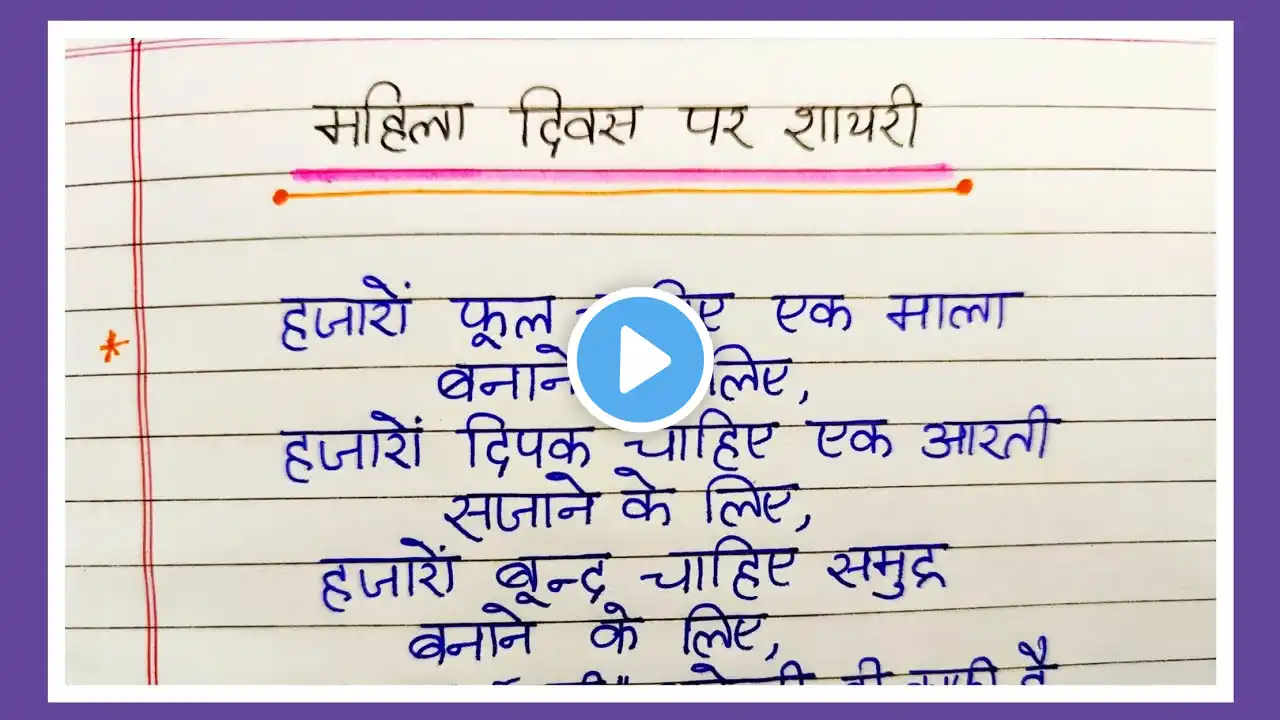 महिला दिवस पर शायरी
हजारों फूल एक माला
बनाने लिए,
हजारों दिपक चाहिए एक आरती
सजाने के लिए,
हजारों बून्द्र चाहिए समुद्र
बनाने के लिए,